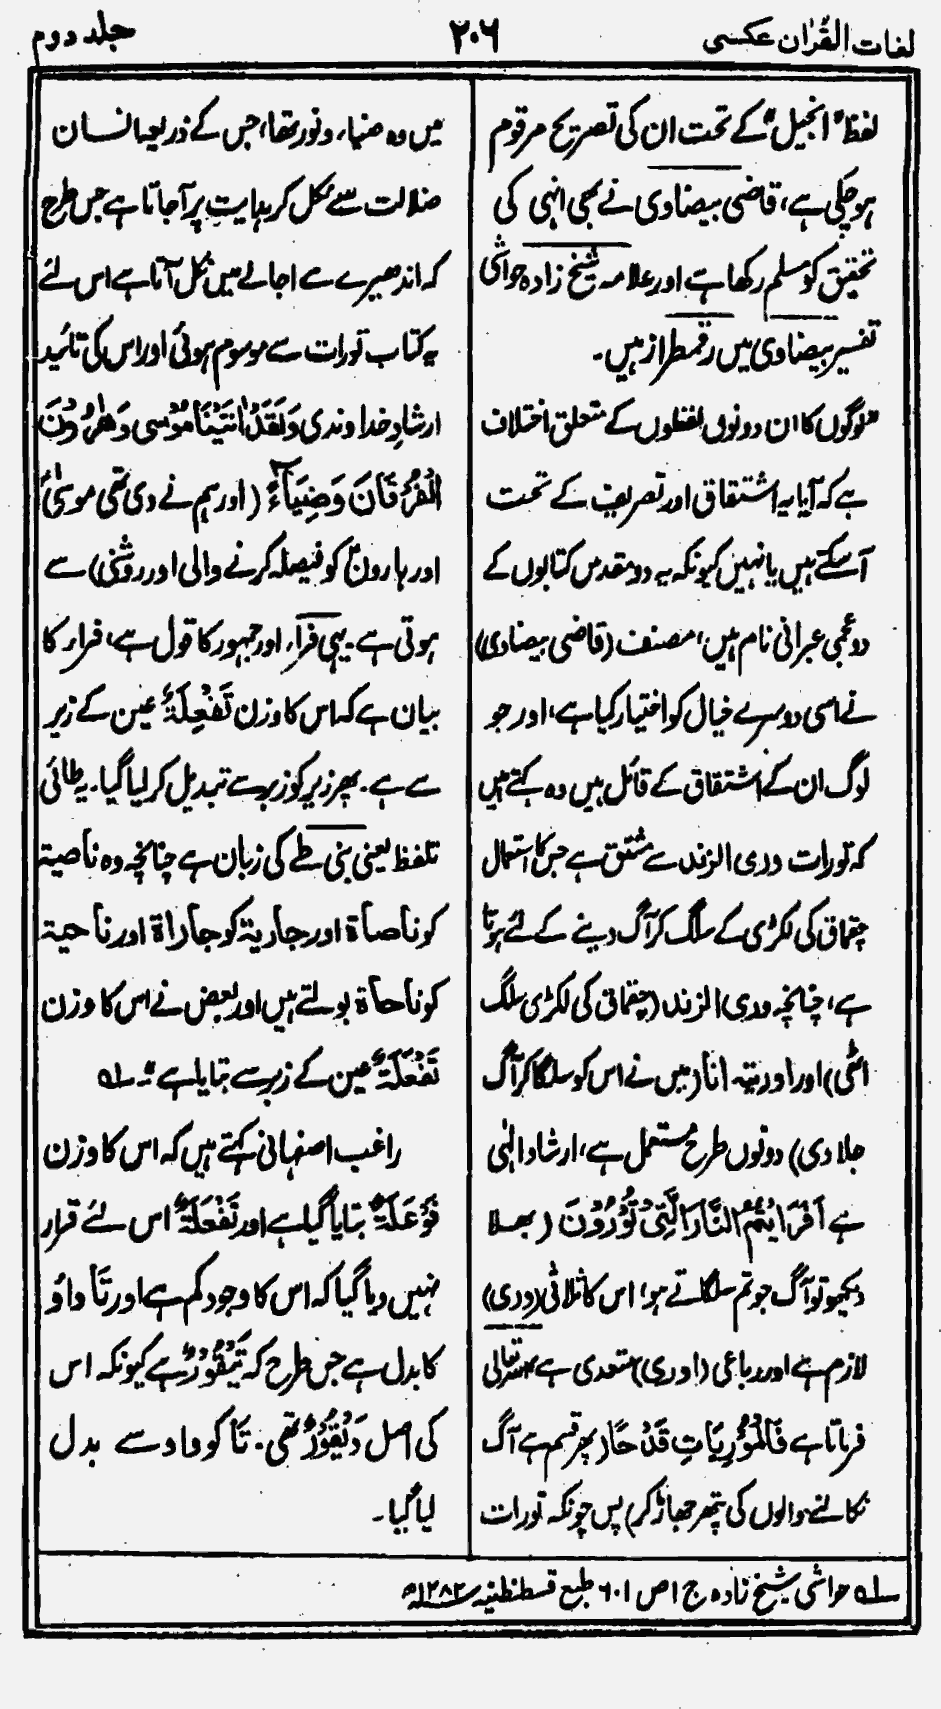 لغات القرآن عکسی
۲۰۶
جلد دوم
لفظ "انجیل" کے تحت ان کی تصریح مرقوم
ہوچکی ہے، قاضی بیضاوی نے بھی انہی کی
تحقیق کو مسلم رکھا ہے اور علامہ شیخ زادہ حواشی
تفسیر بیضاوی میں رقمطراز ہیں۔
"لوگوں کا ان دونوں لفظوں کے متعلق اختلاف
ہے کہ آیا یہ اشتقاق اور تصریف کے تحت
آسکتے ہیں یا نہیں کیونکہ یہ دو مقدس کتابوں کے
دو عجمی عبرانی نام ہیں، مصنف (قاضی بیضاوی)
نے اسی دوسرے خیال کو اختیار کیا ہے، اور جو
لوگ ان کے اشتقاق کے قائل ہیں وہ کہتے ہیں
کہ تورات وری الزند سے مشتق ہے جس کا استعمال
چقماق کی لکڑی کے سلگ کر آگ دینے کے لئے ہوتا
ہے، چنانچہ وری الزند (چقماق کی لکڑی سلگ
اٹھی) اور اوریتہ انا (میں نے اس کو سلگا کر آگ
جلا دی) دونوں طرح مستعمل ہے، ارشاد الٰہی
ہے اَفَرَایْتُمُ النَّارَ الَّتِیْ تُوْرُوْنَ (بھلا
دیکھو تو آگ جو تم سلگاتے ہو) اس کا ثلاثی (وری)
لازم ہے اور رباعی (اوری) متعدی ہے اللہ تعالی
فرماتا ہے فَالْمُوْرِیَاتِ قَدْحًا (پھر قسم ہے آگ
نکالنے والوں کی پتھر جھاڑ کر) پس چونکہ تورات
میں وہ ضیاء ونور تھا، جس کے ذریعہ انسان
ضلالت سے نکل کر ہدایت پر آجاتا ہے جس طرح
کہ اندھیرے سے اجالے میں نکل آتا ہے اس لئے
یہ کتاب تورات سے موسوم ہوئی اور اس کی تائید
ارشادِ خداوندی وَلَقَدْ اٰتَیْنَا مُوْسٰی وَهٰرُوْنَ
الْفُرْقَانَ وَضِیَاءً (اور ہم نے دی تھی موسیٰؑ
اور ہارونؑ کو فیصلہ کرنے والی اور روشنی) سے
ہوتی ہے۔ یہی فراء اور جمہور کا قول ہے، فراء کا
بیان ہے کہ اس کا وزن تَفْعِلَةٌ عین کے زیر
سے ہے۔ پھر زیر کو زبر سے تبدیل کر لیا گیا۔ یہ طائی
تلفظ یعنی بنی طے کی زبان ہے چنانچہ وہ ناصیة
کو ناصاة اور جاریة کو جاراة اور ناحیة
کو ناحاة بولتے ہیں اور بعض نے اس کا وزن
تَفْعَلَةٌ عین کے زبر سے بتایا ہے"۔ لہ
راغب اصفہانی کہتے ہیں کہ اس کا وزن
فَوْعَلَةٌ بتایا گیا ہے اور تَفْعَلَةٌ اس لئے قرار
نہیں دیا گیا کہ اس کا وجود کم ہے اور تَا واؤ
کا بدل ہے جس طرح کہ تَیْقُوْرٌ ہے کیونکہ اس
کی اصل وَیْقُوْرٌ تھی۔ تَا کو واو سے بدل
لیا گیا۔
لہ حواشی شیخ زادہ ج ۱ ص ۶۰۱ طبع قسطنطنیہ سنہ ۱۲۸۲ھ